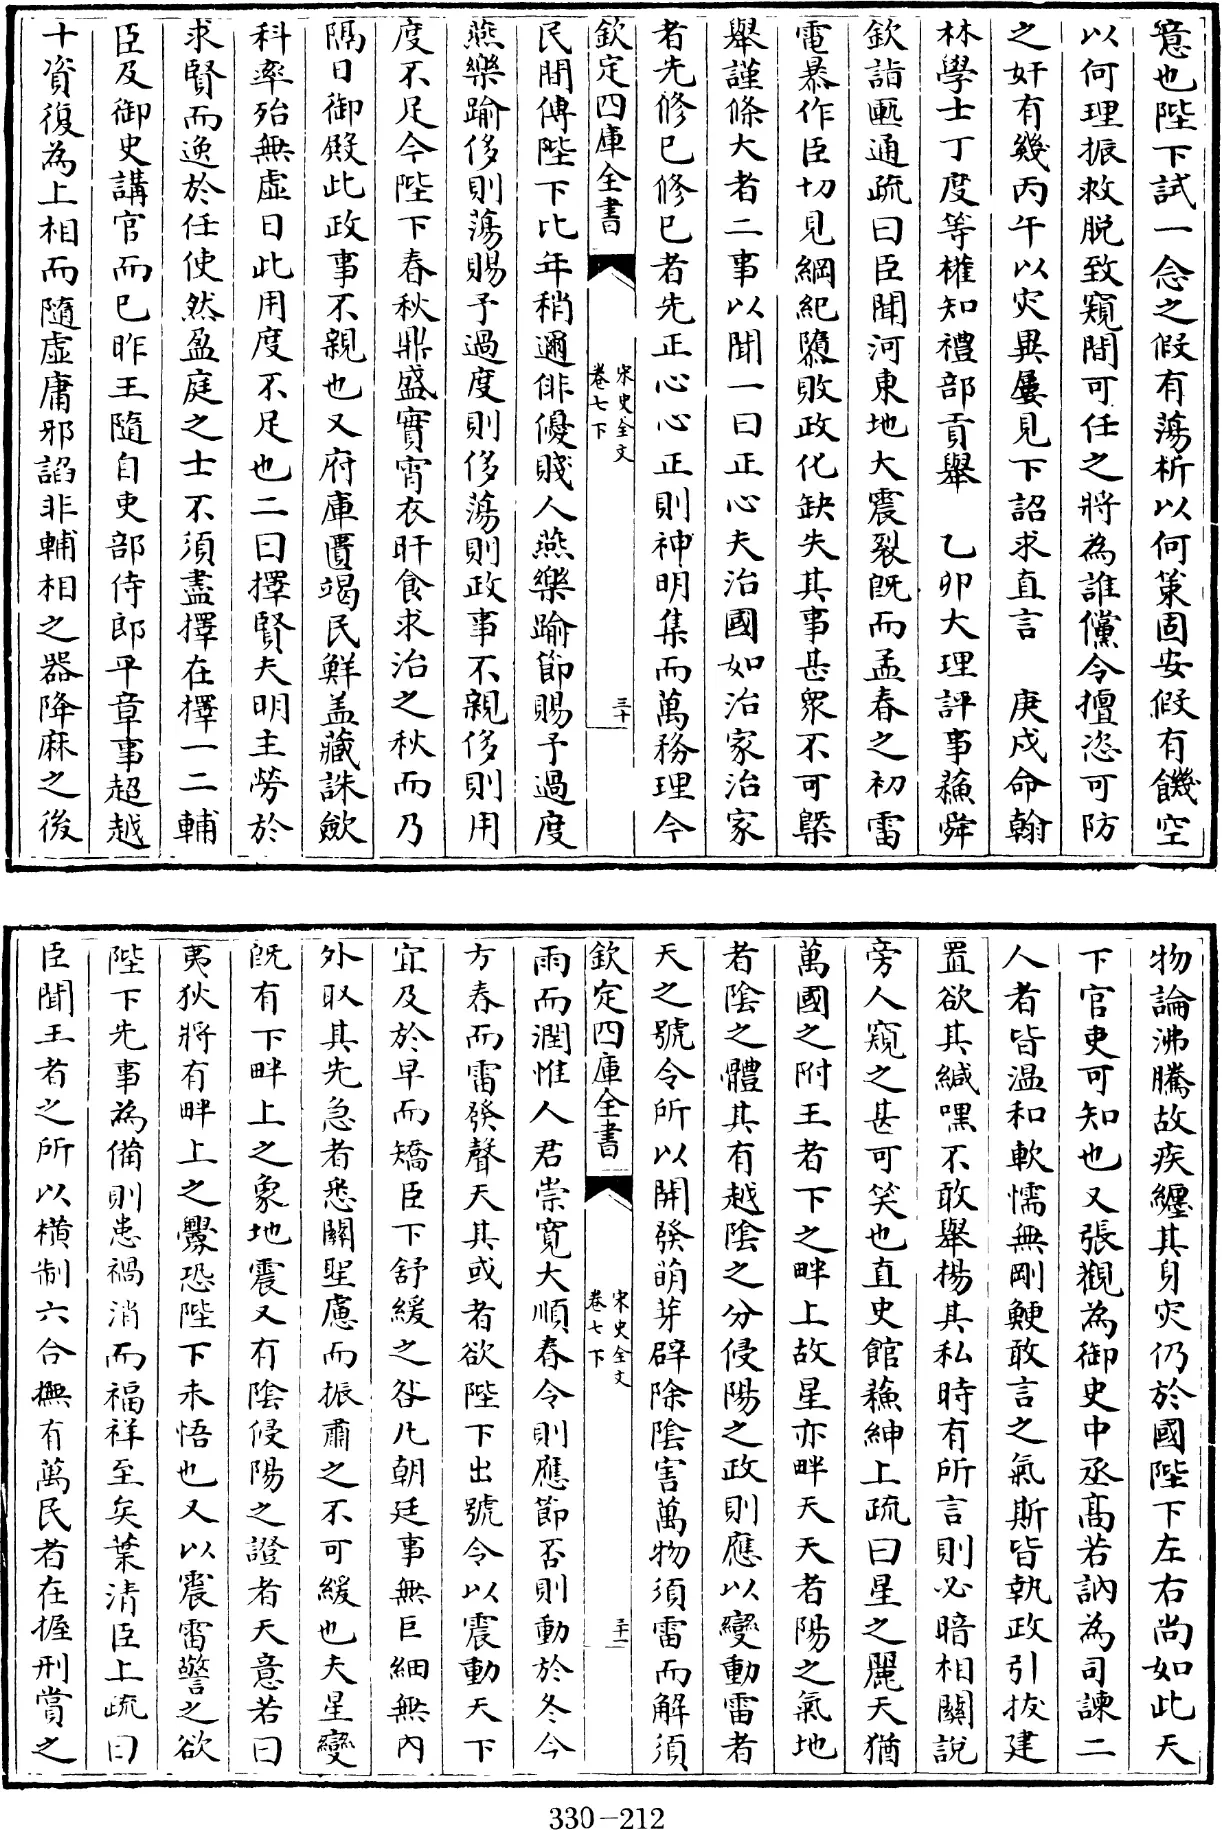 意也陛下試一念之假有蕩析以何策固安假有饑空
以何理振救脫致窺間可任之將為誰儻令擅恣可防
之奸有幾丙午以灾異屢見下詔求直言　庚戌命翰
林學士丁度等權知禮部貢舉　乙卯大理評事蘓舜
欽詣匭通疏曰臣聞河東地大震裂旣而孟春之初雷
電暴作臣切見綱紀隳敗政化缺失其事甚衆不可槩
舉謹條大者二事以聞一曰正心夫治國如治家治家
者先修已修已者先正心心正則神明集而萬務理今
欽定四庫全書　宋史全文　卷七下　三十
民間傳陛下比年稍邇俳優賤人燕樂踰節賜予過度
燕樂踰侈則蕩賜予過度則侈蕩則政事不親侈則用
度不足今陛下春秋鼎盛實宵衣旰食求治之秋而乃
隔日御殿此政事不親也又府庫匱竭民鮮盖藏誅歛
科率殆無虛日此用度不足也二曰擇賢夫明主勞於
求賢而逸於任使然盈庭之士不須盡擇在擇一二輔
臣及御史講官而已昨王隨自吏部侍郎平章事超越
十資復為上相而隨虛庸邪謟非輔相之器降麻之後
物論沸騰故疾纏其身灾仍於國陛下左右尚如此天
下官吏可知也又張觀為御史中丞髙若訥為司諫二
人者皆温和軟懦無剛鯁敢言之氣斯皆執政引拔建
置欲其緘嘿不敢舉揚其私時有所言則必暗相關說
旁人窺之甚可笑也直史館蘓紳上疏曰星之麗天猶
萬國之附王者下之畔上故星亦畔天天者陽之氣地
者陰之體其有越陰之分侵陽之政則應以變動雷者
天之號令所以開發萌芽辟除陰害萬物須雷而解須
欽定四庫全書　宋史全文　卷七下　三十一
雨而潤惟人君崇寛大順春令則應節否則動於冬今
方春而雷發聲天其或者欲陛下出號令以震動天下
宜及於早而矯臣下舒緩之咎凡朝廷事無巨細無內
外取其先急者悉關聖慮而振肅之不可緩也夫星變
旣有下畔上之象地震又有陰侵陽之證者天意若曰
夷狄將有畔上之釁恐陛下未悟也又以震雷警之欲
陛下先事為備則患禍消而福祥至矣葉清臣上疏曰
臣聞王者之所以横制六合撫有萬民者在握刑賞之
330-212